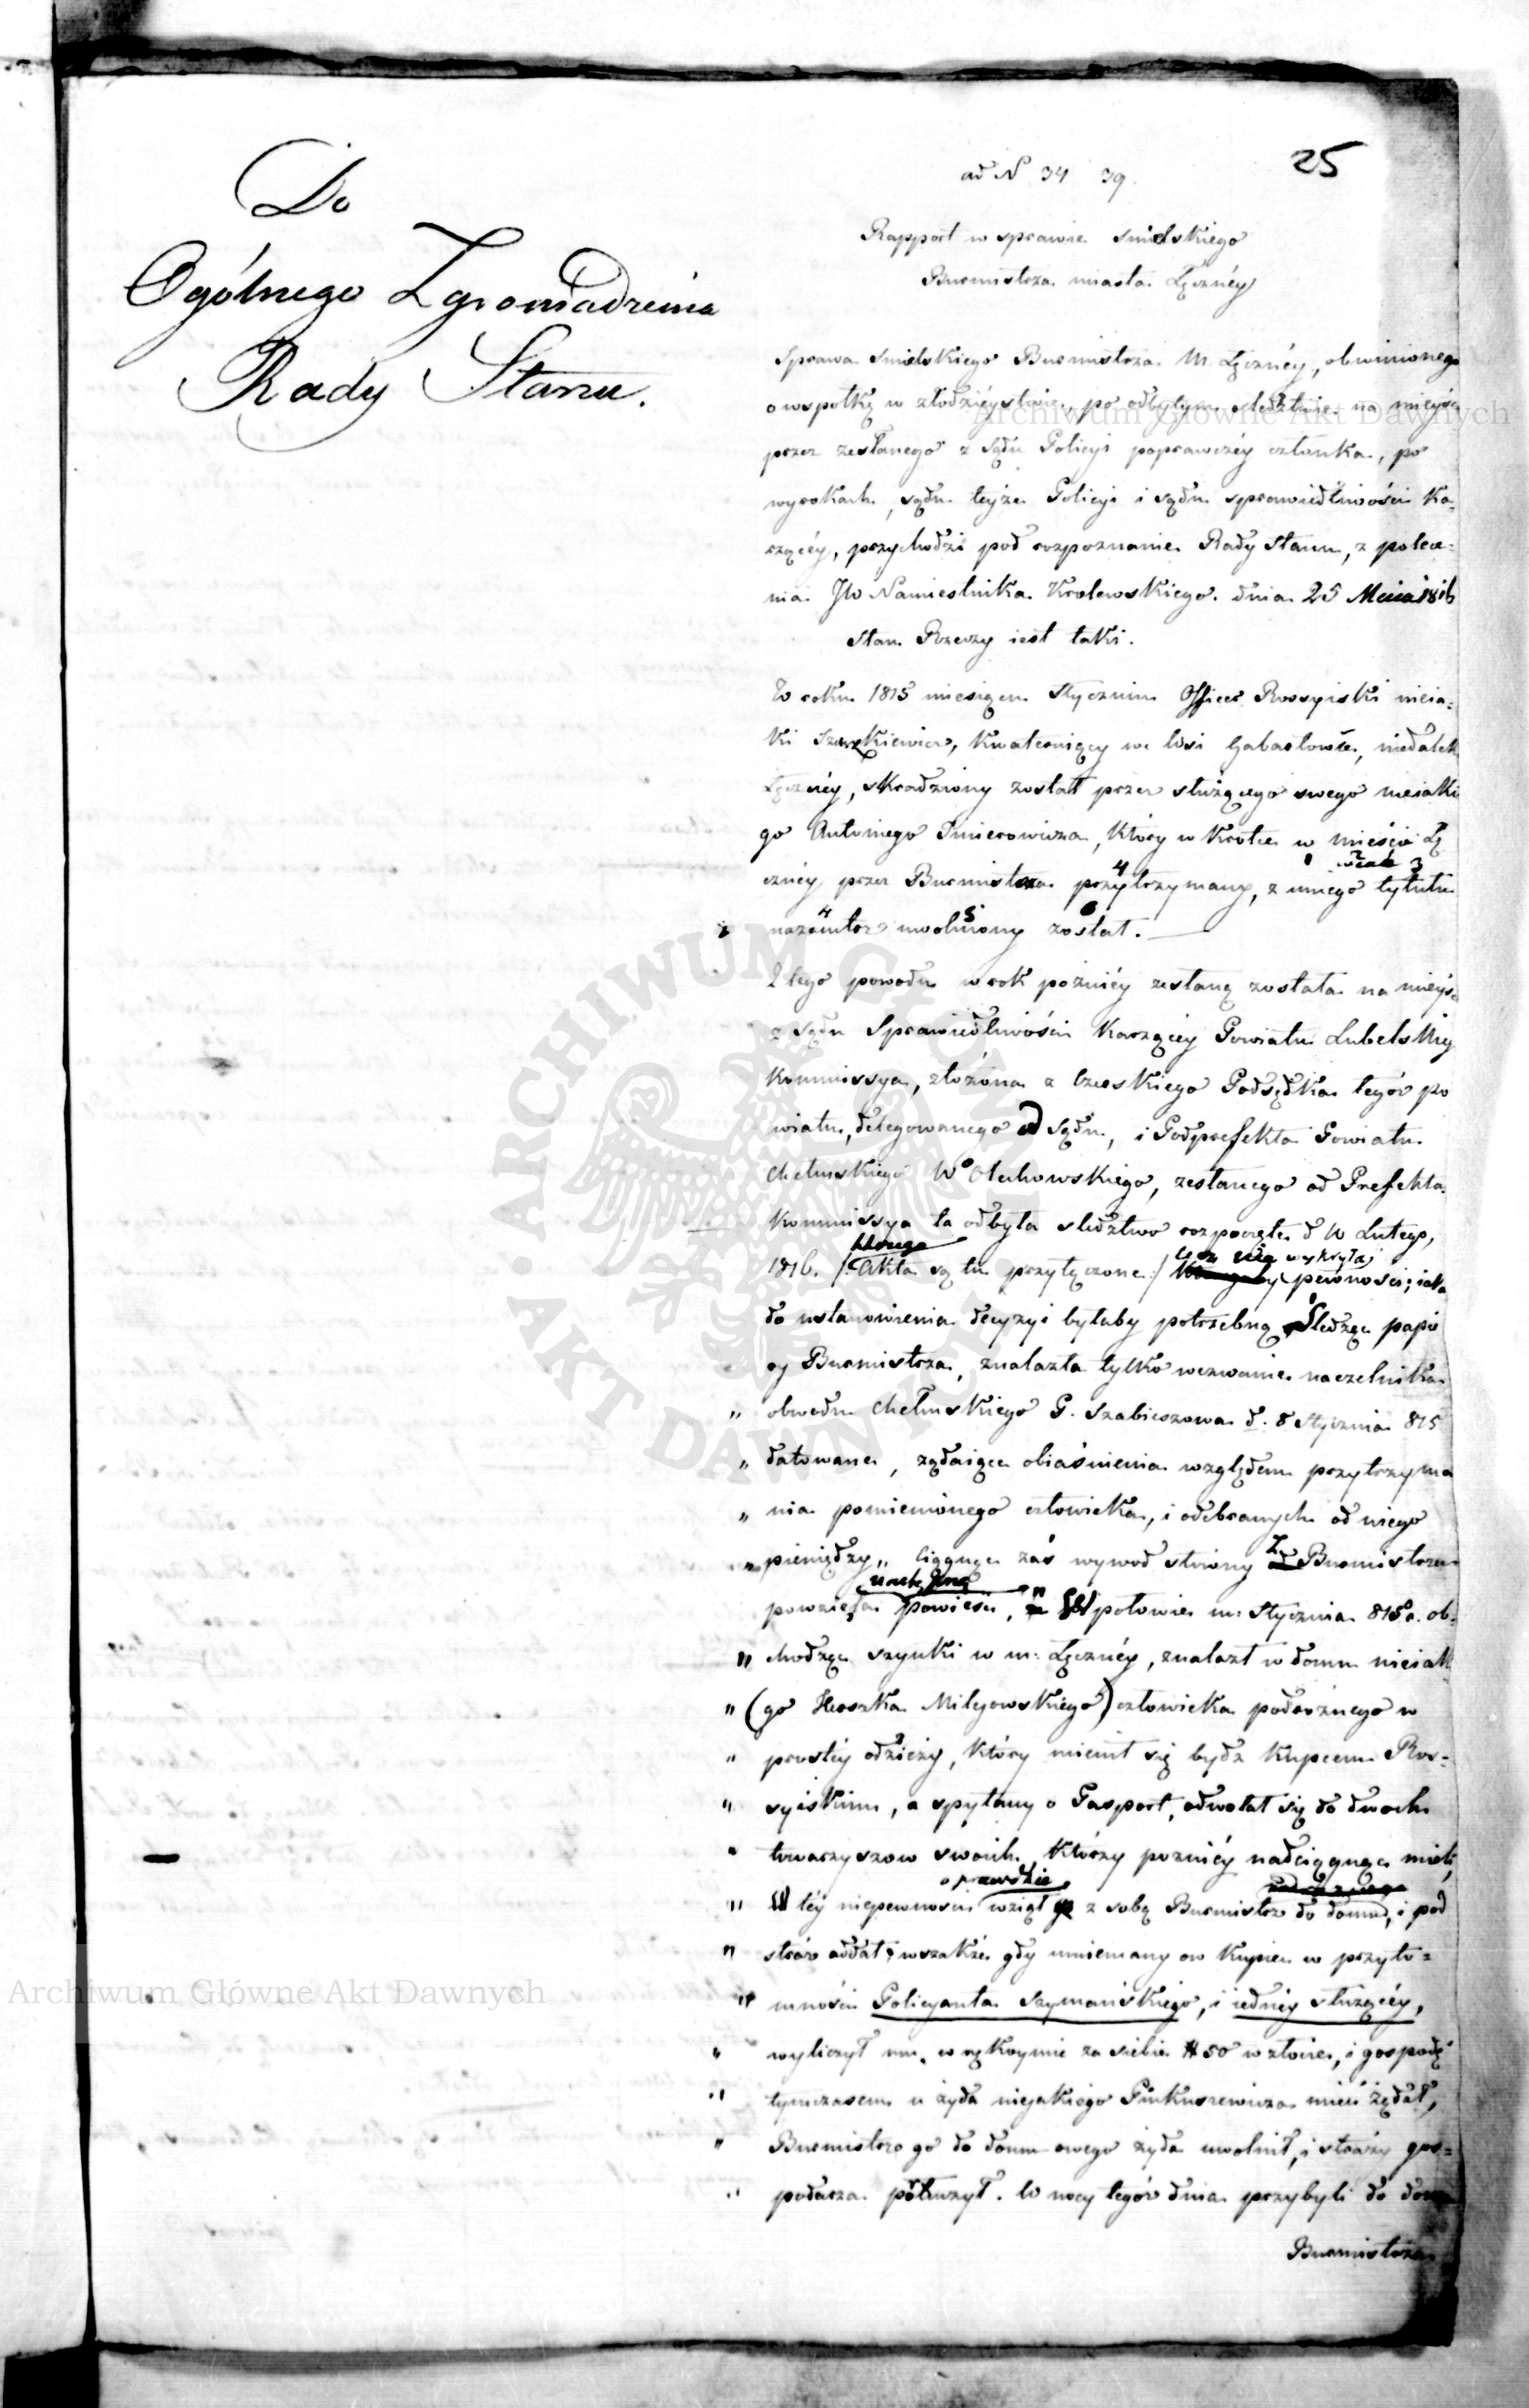 Do
Ogólnego Zgromadzenia
Rady Stanu.
25
ad N 34 39.
Rapport w sprawie Smielskiego
Burmistrza miasta Łęcznéy
Sprawa Smielskiego Burmistrza M. Łęcznéy, obwinionego
o wspołkę w złodzieystwie, po odbytym sledztwie na mieysc
przez zesłanego z Sądu Policyi poprawczéy członka, po
wyrokach, sądu teyże Policyi i sądu sprawiedliwości Ka-
rzącéy, przychodzi pod rozpoznanie Rady Stanu, z polece-
nia JW Namiestnika Krolewskiego dnia 25 Maia 1816
Stan Rzeczy iest taki.
W roku 1815 miesiącu Styczniu Officer Rossyiski nieia-
ki, kwateruiący we Wsi, niedalek
Łęcznéy, skradziony został przez służącego swego nieiakie
go Antoniego, który w krotce w mieście Łę
cznéy przez Burmistrza przytrzymany, z tytułu
nazaiutrz uwolniony został.
Z tego powodu w rok poźniéy zesłaną została na mieysc
z Sądu Sprawiedliwości Karzącéy Powiatu Lubelskieg
Kommissya, złożona z Podsędka tegoż po
wiatu, delegowanego od Sądu, i Podprefekta Powiatu
Chełmskiego W° Olechowskiego, zesłanego od Prefekta.
Kommissya ta odbyła sledztwo rozpoczęte d Lutego,
1816. /: Akta są tu przyłączone :/ lecz nie wykryła pewności, iaka
do ustanowienia decyzyi byłaby potrzebną Sledząc papie
ry Burmistrza, znalazła tylko wezwanie naczelnika
„ obwodu Chełmskiego P. Szabieszowa d. 8 Stycznia 815
„ datowane, żądaiące obiaśnienia względem przytrzyma
„ nia pomienionego człowieka, i odebranych od niego
„ pieniędzy „ Ciągnąc zaś wywod strony Burmistrza
powzięła powieść, W połowie m: Stycznia 815 r. ob-
„ chodząc szynki w m: Łęcznéy, znalazł w domu nieiak
„ (go Herszka Mileiowskiego) człowieka podrożnego w
„ prostéy odzieży, który mienił się bydź Kupcem Ros-
„ syiskim, a spytany o Pasport, odwołał się do dwoch
„ towarzyszow swoich, Którzy poźniéy nadciągnąć mieli
oprawdzie
„ W téy niepewności wziął go z sobą Burmistrz do domu, i pod
„ straż oddał; wszakże gdy mniemany ow Kupiec w przyto-
„ mności Policyanta Szymańskiego, i iednéy służącéy,
„ wyliczył mu w rękoymie za siebie # 50 w złocie, i gospodę
„ tymczasem u żyda nieiakiego Pinkusiewicza mieć żądał,
„ Burmistrz go do domu owego żyda uwolnił, i straży gos-
„ podarza poruczył. W nocy tegoż dnia przybyli do domu
Burmistrza
Archiwum Główne Akt Dawnych
Archiwum Główne Akt Dawnych
ARCHIWUM GŁÓWNE AKT DAWNYCH